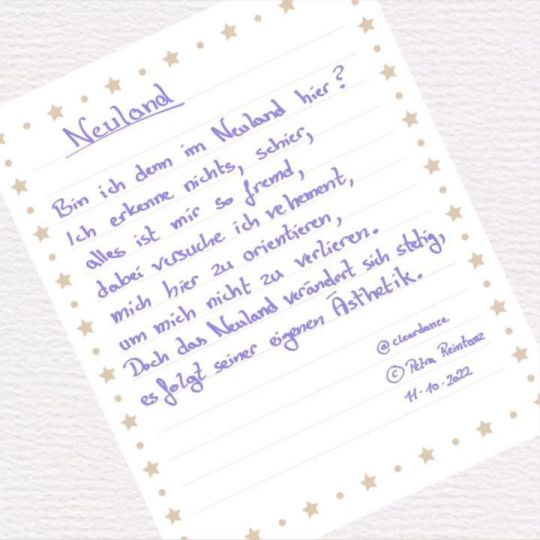 Neuland
Bin ich denn im Neuland hier?
Ich erkenne nichts, schier,
alles ist mir so fremd,
dabei versuche ich vehement,
mich hier zu orientieren,
um mich nicht zu verlieren.
Doch das Neuland verändert sich stetig,
es folgt seiner eigenen Ästhetik.
@cleardance
© Petra Reintanz
11.10.2022